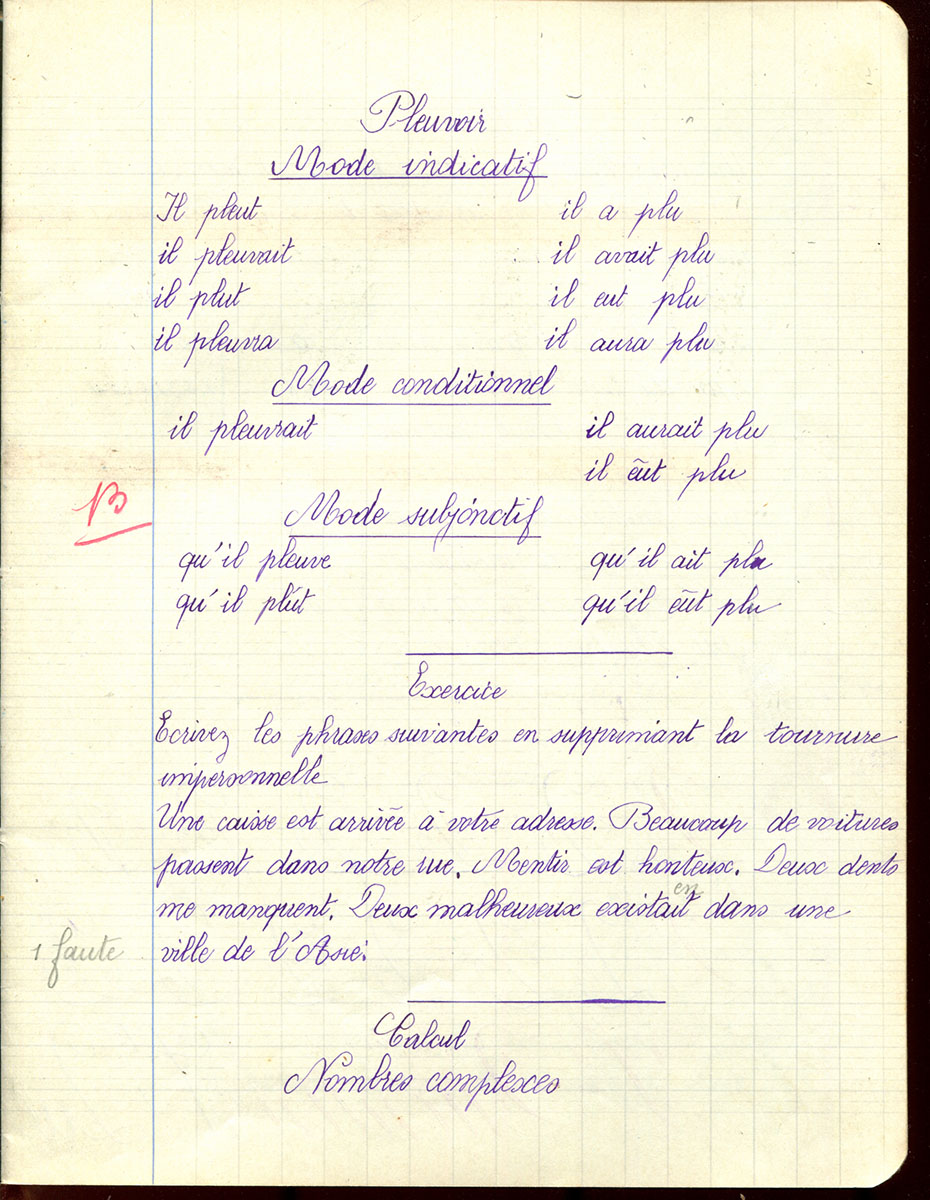 Pleuvoir
Mode indicatif
Il pleut il a plu
il pleuvait il avait plu
il plut il eut plu
il pleuvra il aura plu
Mode conditionnel
il pleuvrait il aurait plu
il eût plu
B
Mode subjonctif
qu'il pleuve qu'il ait plu
qu'il plût qu'il eût plu
Exercice
Ecrivez les phrases suivantes en supprimant la tournure
impersonnelle
Une caisse est arrivée à votre adresse. Beaucoup de voitures
passent dans notre rue. Mentir est honteux. Deux dents
en
me manquent. Deux malheureux existait dans une
1 faute ville de l'Asie.
Calcul
Nombres complexes